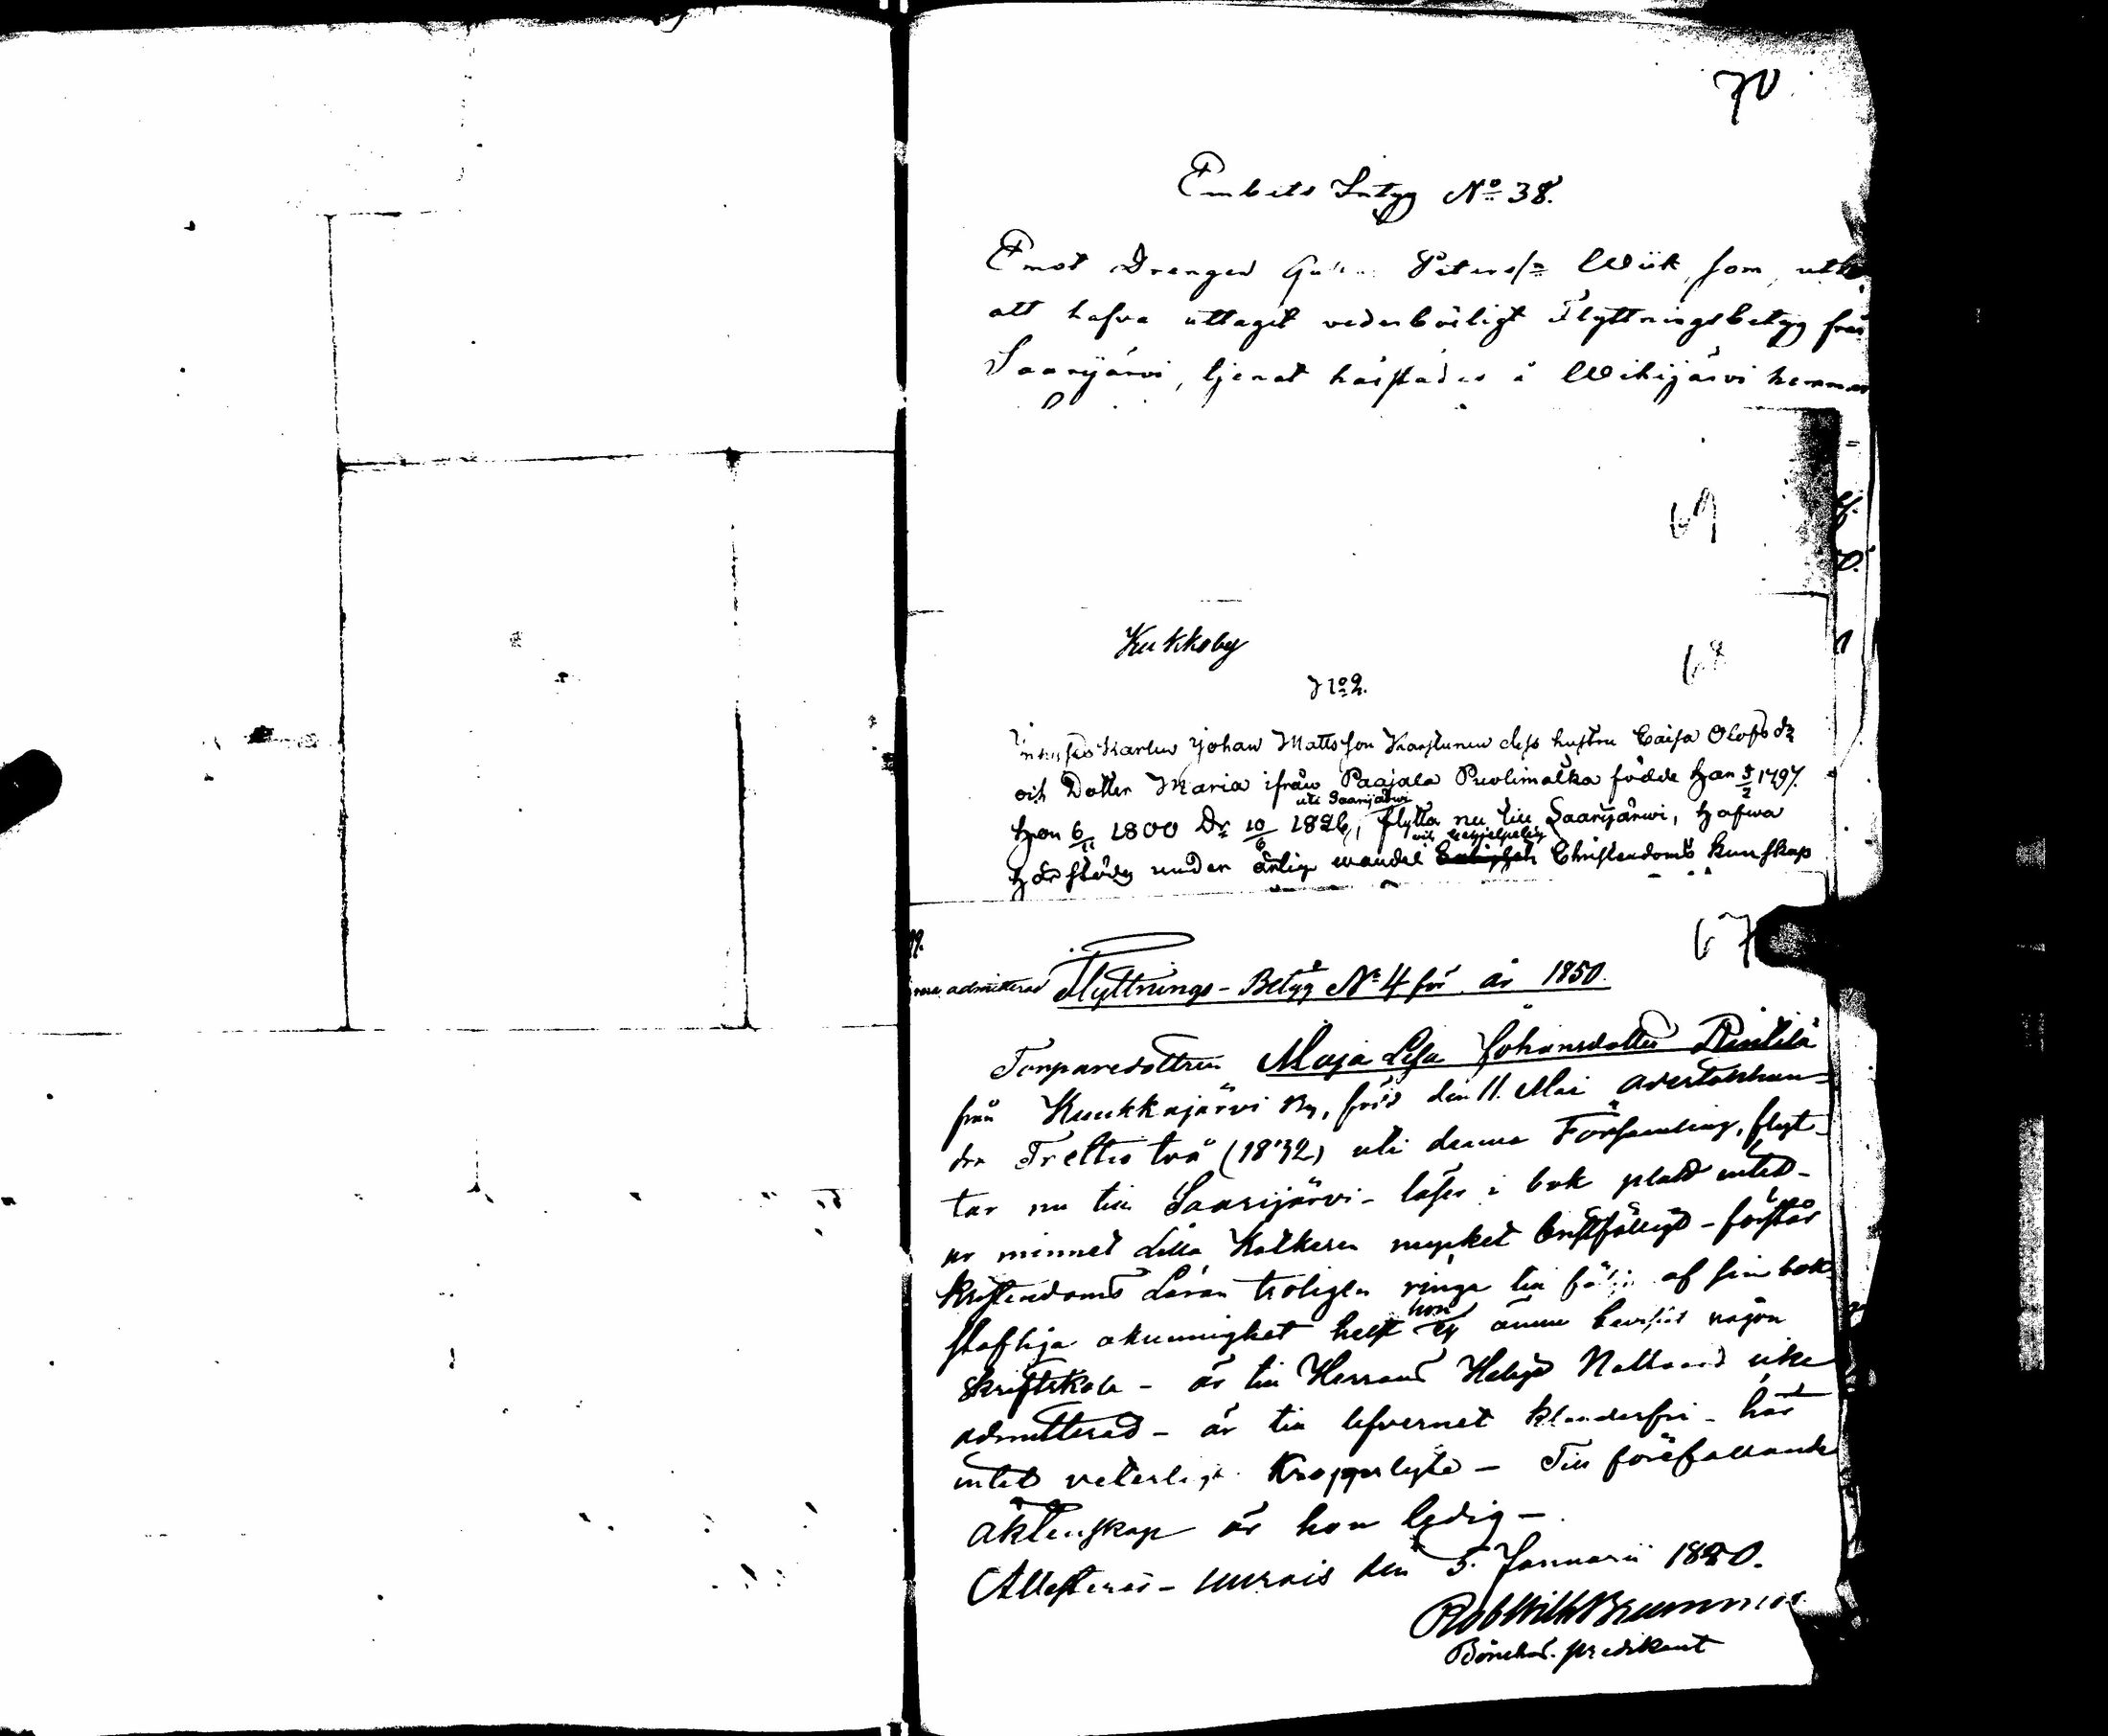 70
Embets Intyg No 38.
Emot Drengen Peterss: Wiik, som,
att hafva uttagit vederbörligt Flyttningsbetyg från
Saarijärvi, tjenat härstädes å Wihijärvi hemman
69
Kukkoby
68
No 2.
Johan Mattsson Karstunen dess hustru Caisa Olofsdr
och Dotter Maria ifrån Paajala Puolimatka födde han 5/2 1797.
uti Saarijärwi
hon 6/11 1800 Dr 10/6 1826, flytta nu till Saarijärwi, hafwa
här städes under ärlig wandel Christendoms kunskap
67
admitterad Flyttnings-Betyg No 4 för år 1850.
Torparedottren Maja Lisa Johansdotter Rintilä
från Kuukkajärvi By, född den 11. Maii Adertonhun-
dra Trettio två (1832) uti denna Församling, flyt-
tar nu till Saarijärvi - läser i bok platt intet -
ur minnet Lilla Katkesen mycket bristfälligt - förstår
kristendoms Läran troligen ringa till följe af sin bok-
hon
stafliga okunnighet helst ej ännu bevistat någon
Skriftskola - är till Herrans Heliga Nattvard icke
admitterad - är till lefvernet klanderfri - har
intet veterligt Kroppslyte - Till förefallande
äktenskap är hon ledig -
Attesteras - Uurais den 5. Januarii 1850.
Rob Wilh Brummer
Bönehus. predikant